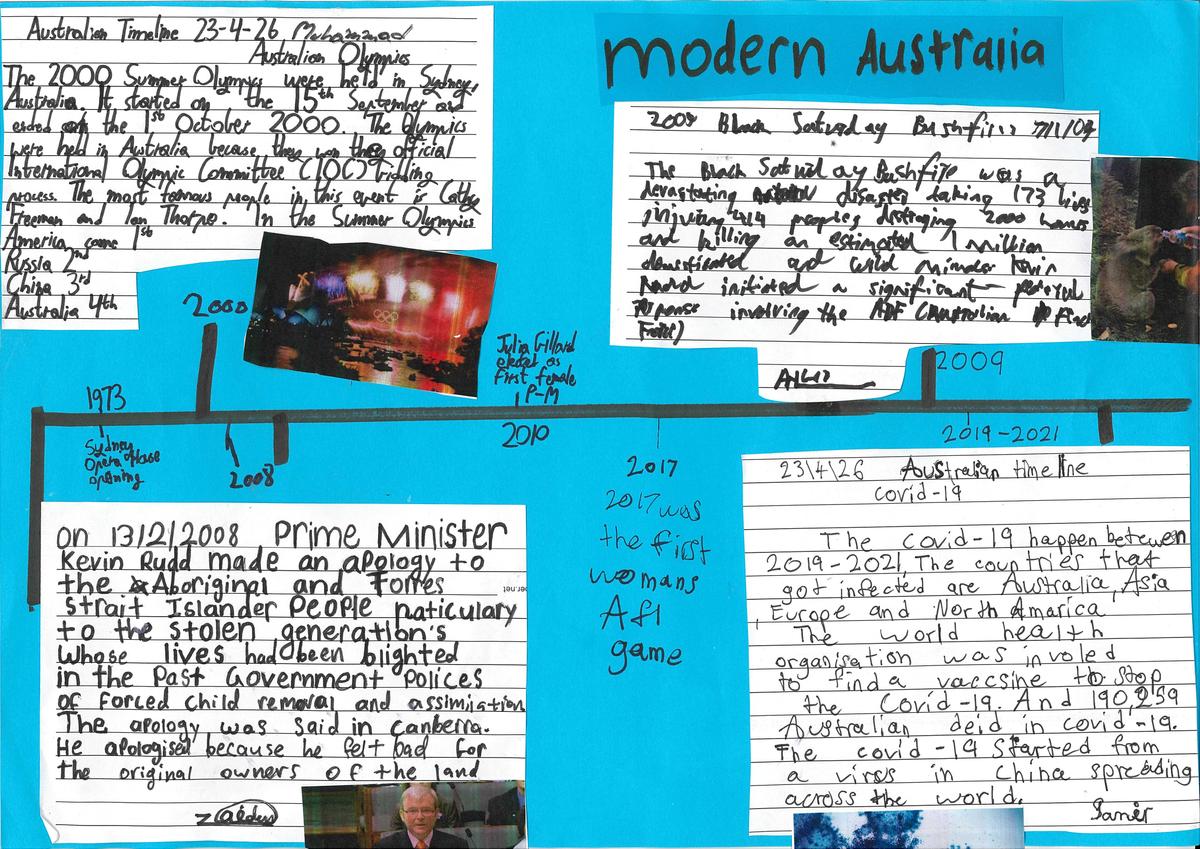 Australian Timeline 23-4-26 Muhammad
Australian Olympics
The 2000 Summer Olympics were held in Sydney,
Australia. It started on the 15th September and
ended on the 1st October 2000. The Olympics
were held in Australia because they won the official
International Olympic Committee (IOC) bidding
process. The most famous people in this event is Cathy
Freeman and Ian Thorpe. In the Summer Olympics
America came 1st
Russia 2nd
China 3rd
Australia 4th
modern Australia
2009 Black Saturday Bushfires
The Black Saturday Bushfire was a
devastating disaster taking 173 lives
injuring 414 peoples destroying 2000 homes
and killing an estimated 1 million
and wild
initiated a significant
involving the ADF (Australian
Force)
2000
Julia Gillard
elected as
first female
P-M
2009
1973
Sydney
Opera House
opening
2008
2010
2017
2017 was
the first
womans
Afl
game
2019-2021
on 13/2/2008 Prime Minister
Kevin Rudd made an apology to
the Aboriginal and Torres
Strait Islander People paticulary
to the stolen generation's
whose lives had been blighted
in the Past Government Polices
of Forced Child removal and assimilation
The apology was said in Canberra.
He apologised because he felt bad for
the original owners of the land
zaiden
23/4/26 Australian timeline
covid-19
The covid-19 happen between
2019-2021, The countries that
got infected are Australia, Asia
, Europe and North Amarica
The world health
organisation was involed
to find a vaccsine to stop
the Covid-19. And 190,259
Australian deid in covid-19.
The covid-19 started from
a virus in China spreading
across the world.